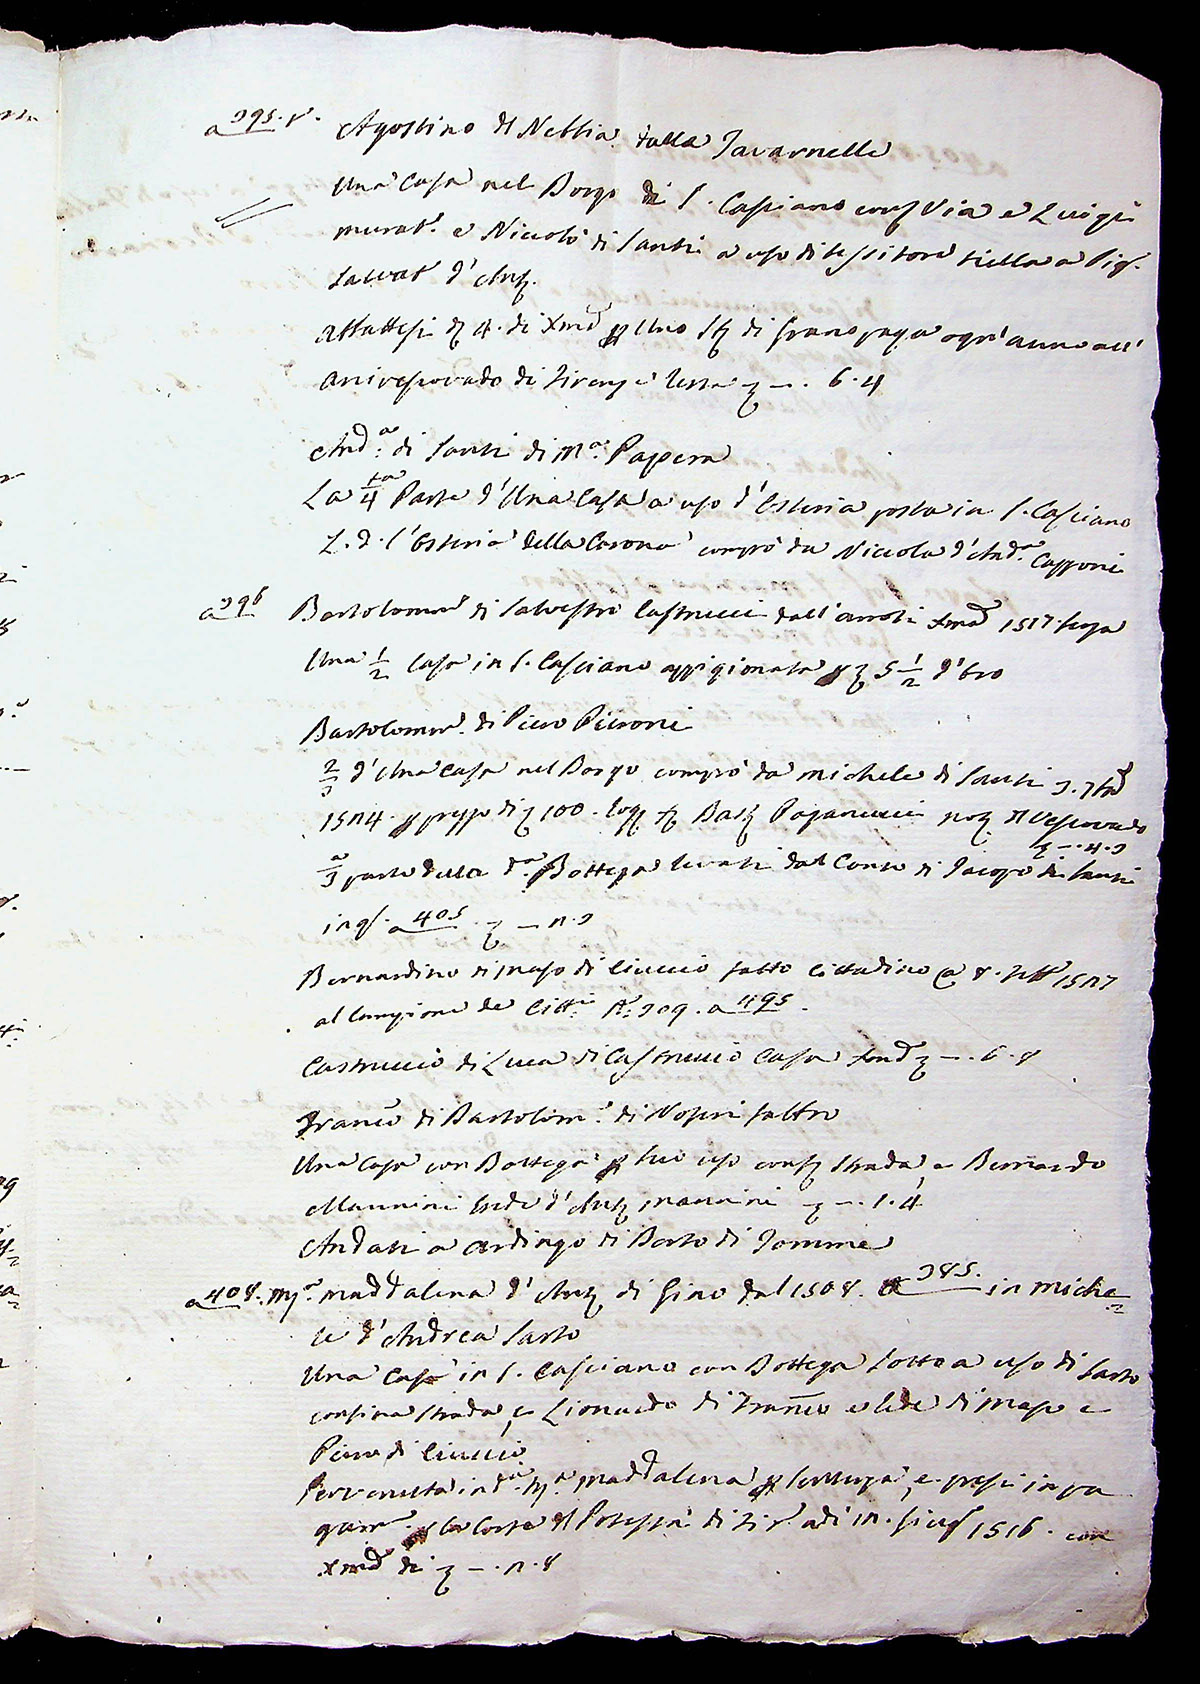 a 395. t. Agostino di Nebbia dalle Tavarnelle
Una Casa nel Borgo di S. Casciano conf. Via e Luigi
murat.e e Niccolò di Santi a uso di tessitore tiella a Pig.
Salvat.e d'Ant.
abbattesi 4. di Xma p Uno St. di grano paga ogn'anno all'
Arcivescovado di Firenze resta — . 6 . 4
And.a di Santi di M.o Papera
La 1/4 Parte d'Una Casa a uso d'Osteria posta in S. Casciano
L. d. l'Osteria della Corona comprò da Niccola d'And.a Capponi
a 396 Bartolomeo di Salvestro Castrucci dall'arroti Xma 1517
Una 1/2 Casa in S. Casciano appigionata p 5 1/2 d'Oro
Bartolomeo di Piero Pieroni
2/3 d'Una Casa nel Borgo comprò da Michele di Santi 3. 7bre
1524 p prezzo di 100. Bast. Paganucci not. Vescovado
— . 4 . 3
1/3 parte della d.a Bottega levati dal Conto di Jacopo di Santi
in q. a 405 — 2 . 3
Bernardino di Maso di Ciuccio fatto Cittadino 8. 1527
al Campione de Citt.i N.o 309. a 495.
Castruccio di Luca di Castruccio Casa — . 6 . 8
Franc.o di Bartolom.o di Noferi fabbro
Una Casa con Bottega p suo uso conf. Strada, e Bernardo
Mannini Erede d'Ant. Mannini — . 1 . 4
Andati a Ardingo di Berto di Tomme
a 408. M.a Maddalena d'Ant. di Gino dal 1508. a 385. in Miche
le d'Andrea Sarto
Una Casa in S. Casciano con Bottega sotto a uso di Sarto
confina Strada, e Lionardo di Franco e Erede di Maso e
Piero di Ciuccio
Pervenuta in d.a M.a Maddalena p sentenza, e presi in pa
gam.to p la Corte del Potestà di Fir.e a dì 12. Giug. 1516. con
Xma di — . 2 . 8